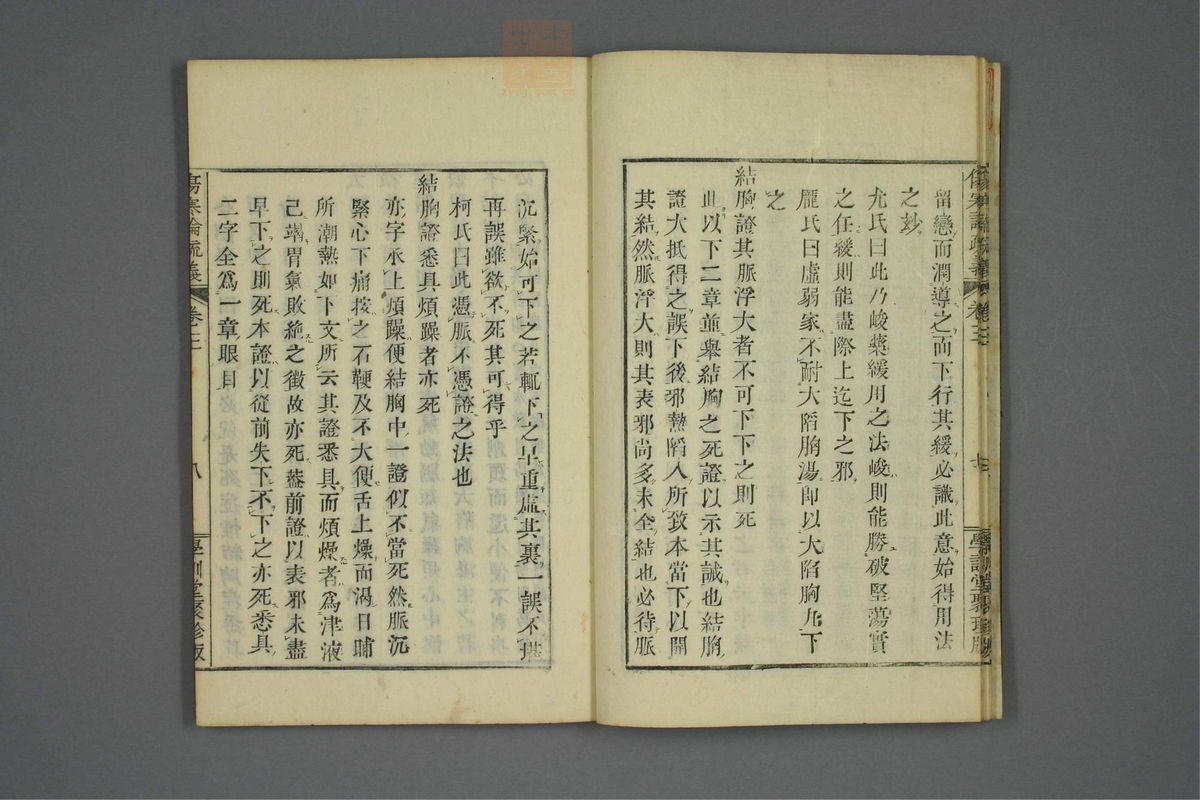 留戀而潤導之而下行其緩必識此意始得用法
之妙
尤氏曰此乃峻藥緩用之法峻則能勝破堅蕩實
之任緩則能盡際上迄下之邪
龐氏曰虛弱家不耐大陷胸湯即以大陷胸丸下
之
結胸證其脈浮大者不可下下之則死
此以下二章並舉結胸之死證以示其誡也結胸
證大抵得之誤下後邪熱陷入所致本當下以開
其結然脈浮大則其表邪尚多未全結也必待脈
傷寒論疏義
卷三
七
學訓堂聚珍版
沉緊始可下之若輒下之早重虛其裏一誤不堪
再誤雖欲不死其可得乎
柯氏曰此憑脈不憑證之法也
結胸證悉具煩躁者亦死
亦字承上煩躁便結胸中一證似不當死然脈沉
緊心下痛按之石鞕及不大便舌上燥而渴日晡
所潮熱如下文所云其證悉具而煩燥者為津液
已竭胃氣敗絶之徵故亦死葢前證以表邪未盡
早下之則死本證以從前失下不下之亦死悉具
二字全爲一章眼目
傷寒論疏義
卷三
八
學訓堂聚珍版